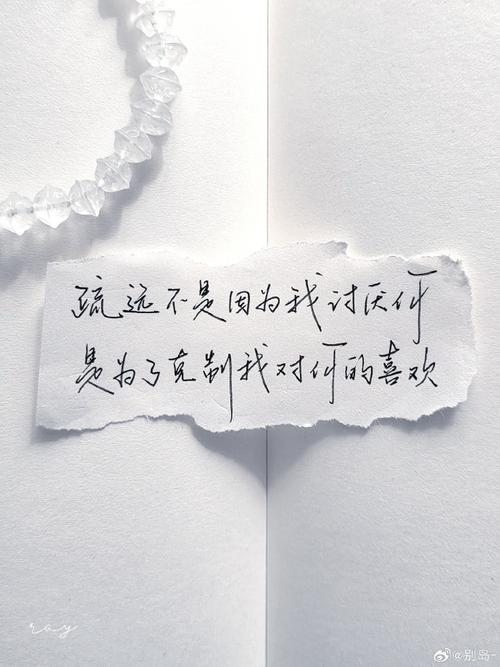 疏远不是因为我讨厌你
是为了克制我对你的喜欢
ray
@别岛-